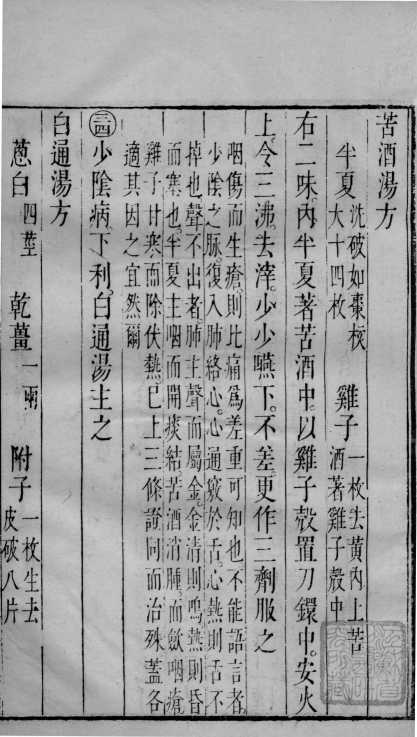 苦酒湯方
半夏 洗破如棗核 大十四枚 雞子 一枚去黃內上苦 酒著雞子殼中
右二味。內半夏著苦酒中。以雞子殼置刀鐶中。安火
上。令三沸。去滓。少少嚥下。不差。更作三劑服之
咽傷而生瘡。則比痛為差重可知也不能語言者。
少陰之脉。復入肺絡心。心通竅於舌。心熱則舌不
掉也聲不出者肺主聲而屬金。金清則鳴熱則昏
而塞也。半夏主咽而開痰結苦酒消腫。而歛咽瘡
雞子甘寒而除伏熱已上三條證同而治殊蓋各
適其因之宜然爾
三四 少陰病。下利。白通湯主之
白通湯方
蔥白 四莖 乾薑 一兩 附子 一枚生去 皮破八片